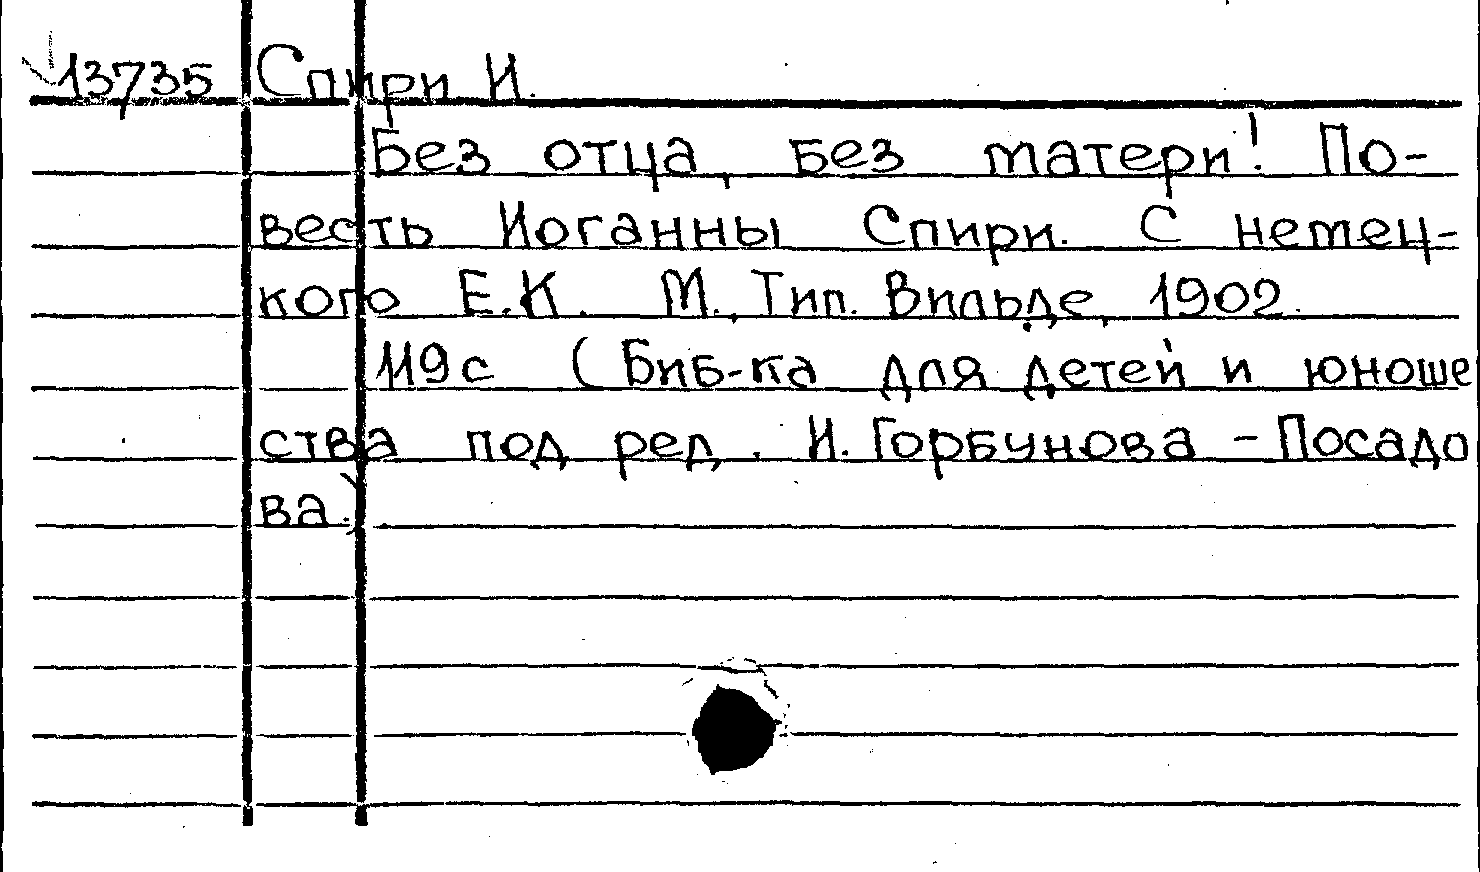 13735 Спири И.
Без отца, без матери! По-
весть Иоганны Спири. С немец-
кого Е.К. М., Тип. Вильде, 1902.
119с (Биб-ка для детей и юноше
ства под ред. И. Горбунова-Посадо
ва.)